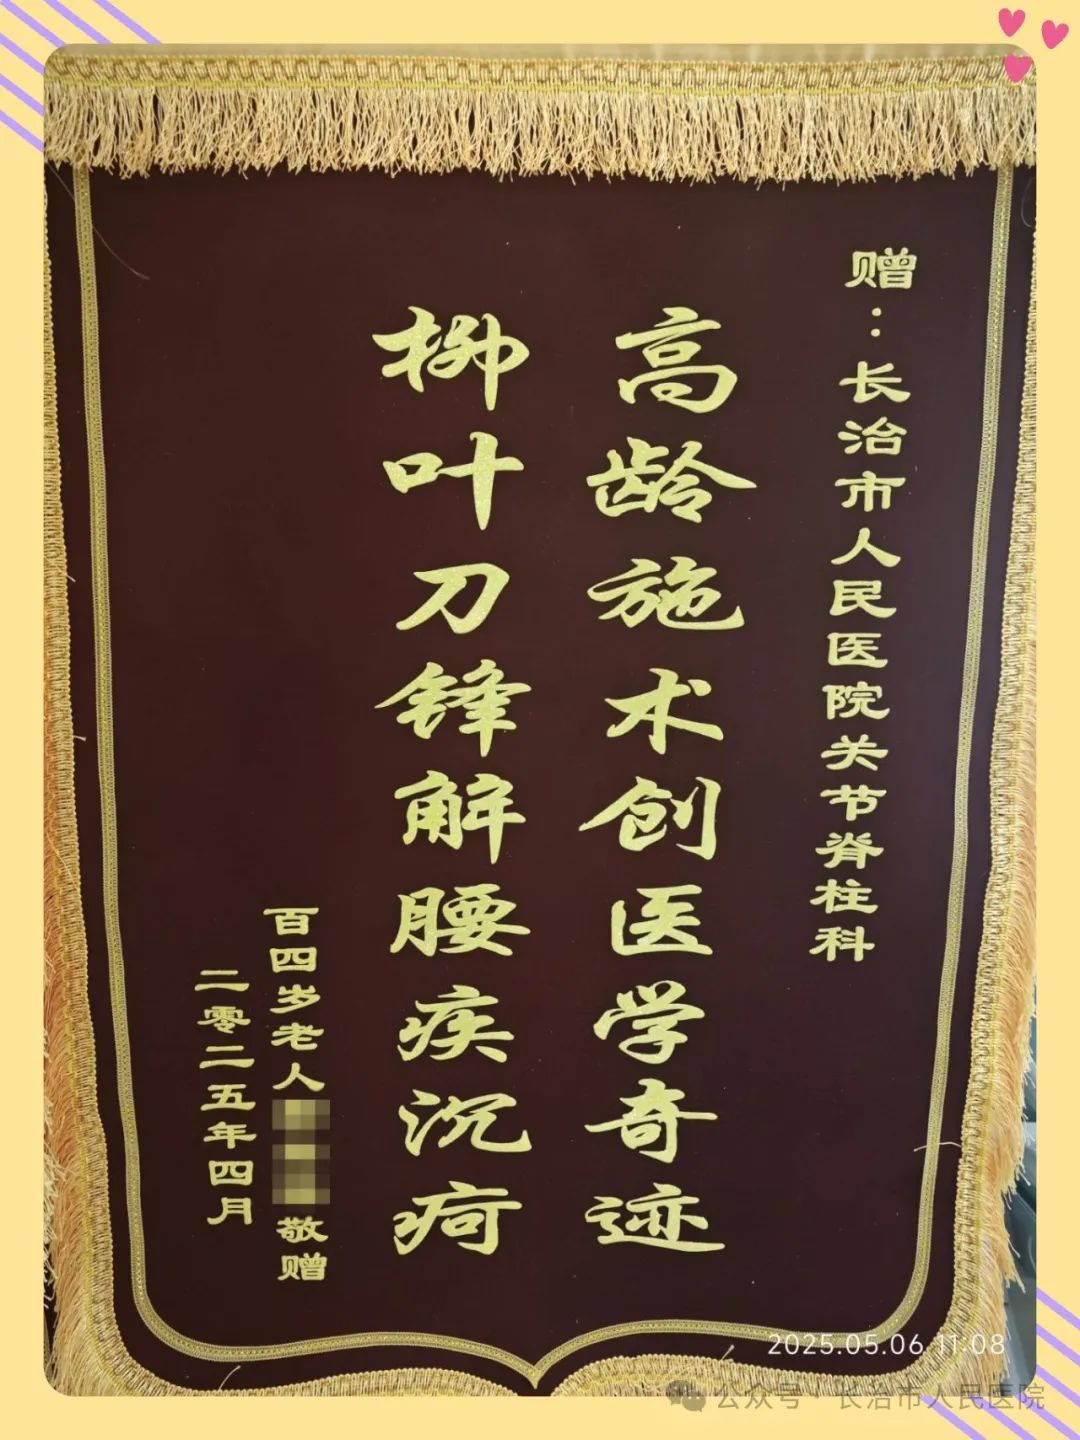 赠：长治市人民医院关节脊柱科
高龄施术创医学奇迹
柳叶刀锋解腰疾沉疴
百四岁老人
敬赠
二零二五年四月
2025.05.06 11:08
公众号·长治市人民医院